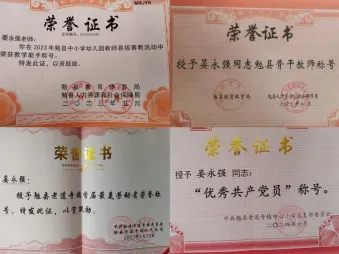 MXJY6
荣誉证书
晏永强老师:
你在2023年勉县中小学幼儿园教师县级赛教活动中
荣获教学能手称号。
特发此证,以资鼓励。
勉县教育体育局
勉县人力资源和社会保障局
二〇二三年
荣誉证书
授予晏永强同志勉县骨干教师称号
勉县教育体育局
荣誉证书
晏永强:
授予勉县老道寺镇首届最美劳动者荣誉称
号,特发此证,以资鼓励。
荣誉证书
授予 晏永强 同志:
“优秀共产党员”称号。